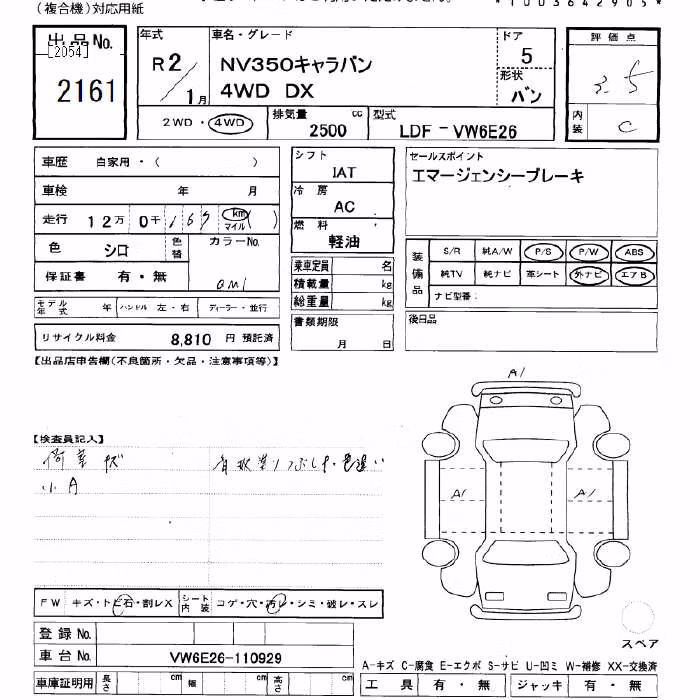 (複合機)対応用紙
*1003642905*
出品No.
[2054]
2161
年式
R2/1月
車名・グレード
NV350キャラバン
4WD DX
ドア
5
形状
バン
評価点
3.5
内装
C
2WD・4WD
排気量
2500
cc
型式
LDF-VW6E26
車歴 自家用・( )
車検 年 月
走行 12万 0千 km マイル ( )
色 シロ
色替
カラーNo.
保証書 有・無
モデル年式 年
ハンドル 左・右
ディーラー・並行
リサイクル料金 8,810 円 預託済
シフト
IAT
冷房
AC
燃料
軽油
乗車定員 名
積載量 kg
総重量 kg
書類期限
月 日
セールスポイント
エマージェンシーブレーキ
装備品
S/R 純A/W P/S P/W ABS
純TV 純ナビ 革シート 外ナビ エアB
ナビ型番:
後日品
【出品店申告欄(不良箇所・欠品・注意事項等)】
【検査員記入】
荷室キズ
小A
A1
A1
A1
FW キズ・トビ石・割レX
シート内装 コゲ・穴・汚レ・シミ・破レ・スレ
登録No.
車台No. VW6E26-110929
車庫証明用 長さ cm 幅 cm 高さ cm
スペア
A-キズ C-腐食 E-エクボ S-サビ U-凹ミ W-補修 XX-交換済
工具 有・無 ジャッキ 有・無